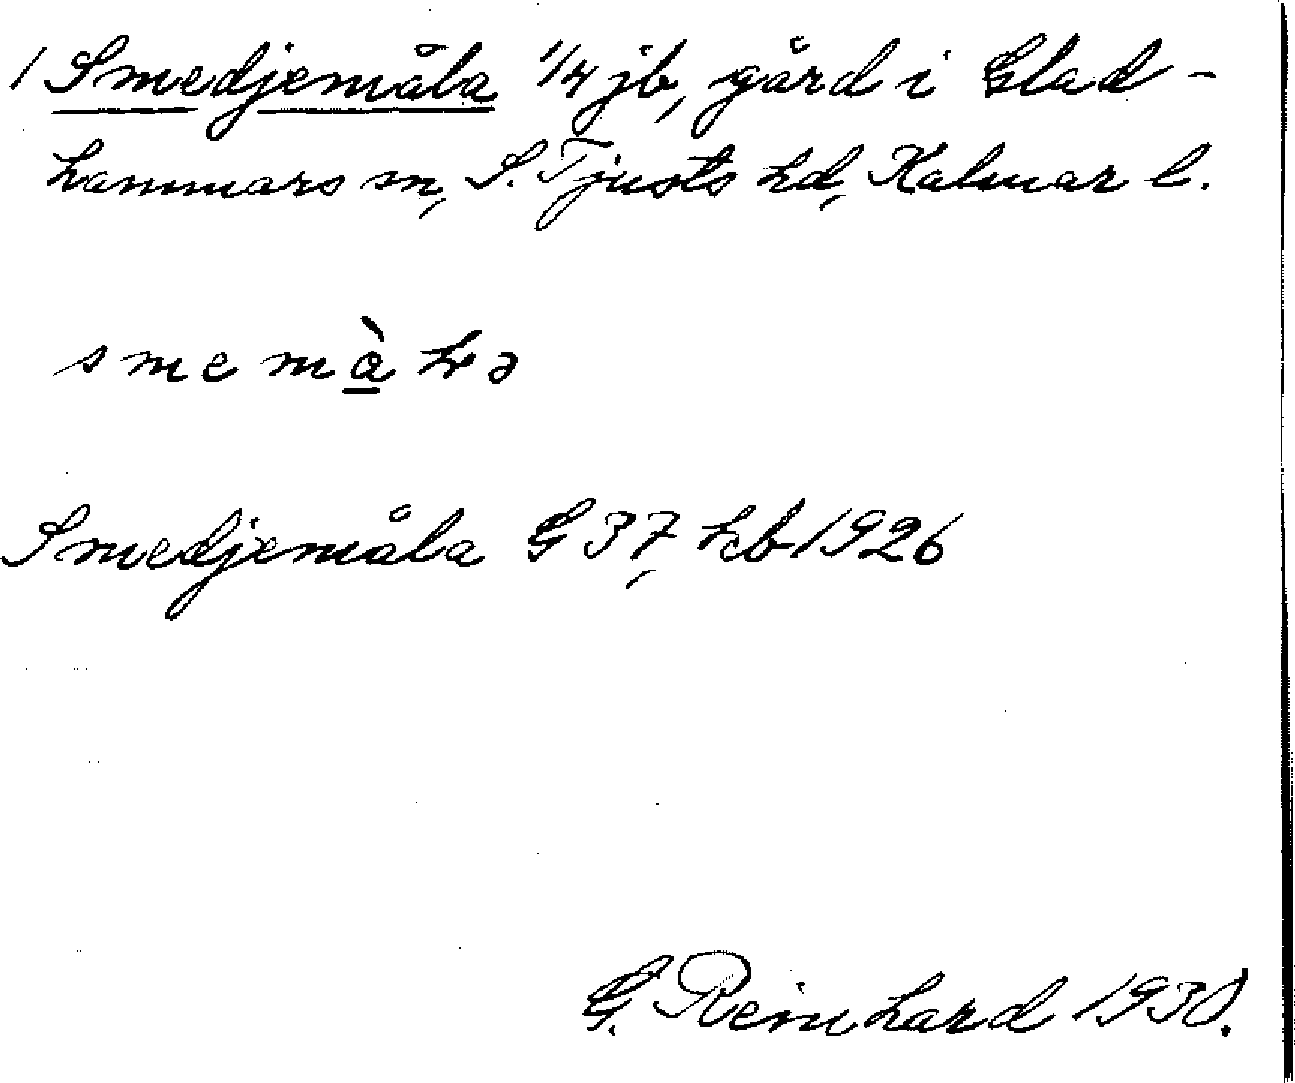 1 Smedjemåla 1/4 jb, gård i Glad-
hammars sn, S. Tjusts hd, Kalmar l.
smemàlə
Smedjemåla G 37, kb 1926
G. Reinhard 1930.